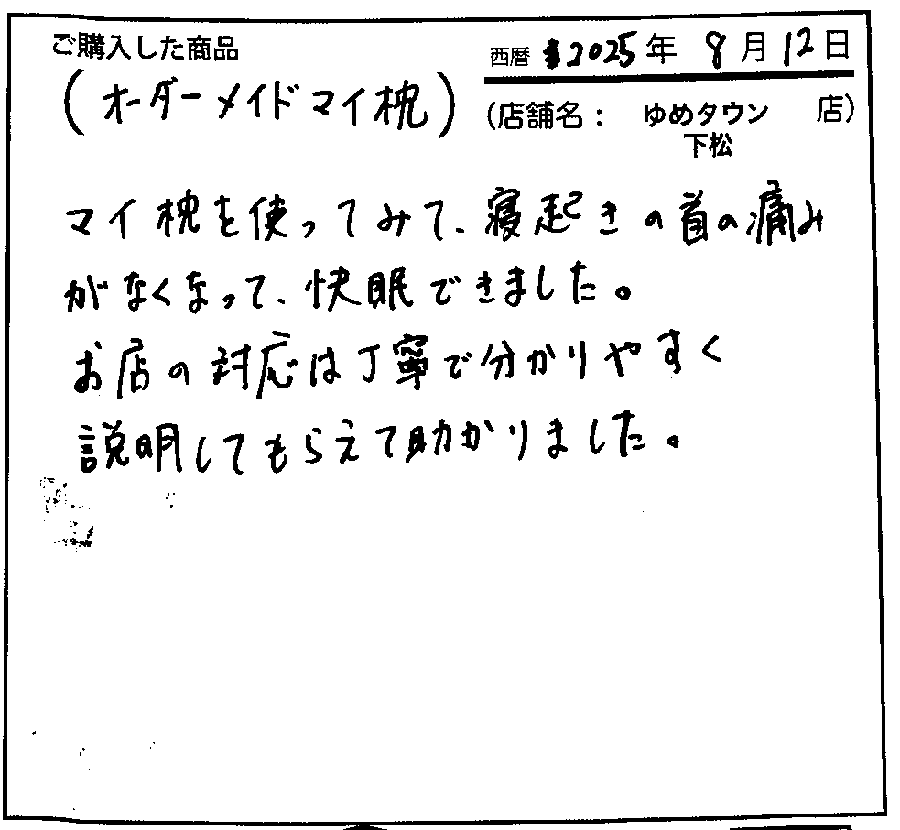 ご購入した商品
西暦 2025年 8月 12日
(オーダーメイドマイ枕)
(店舗名： ゆめタウン 店)
下松
マイ枕を使ってみて、寝起きの首の痛み
がなくなって、快眠できました。
お店の対応は丁寧で分かりやすく
説明してもらえて助かりました。